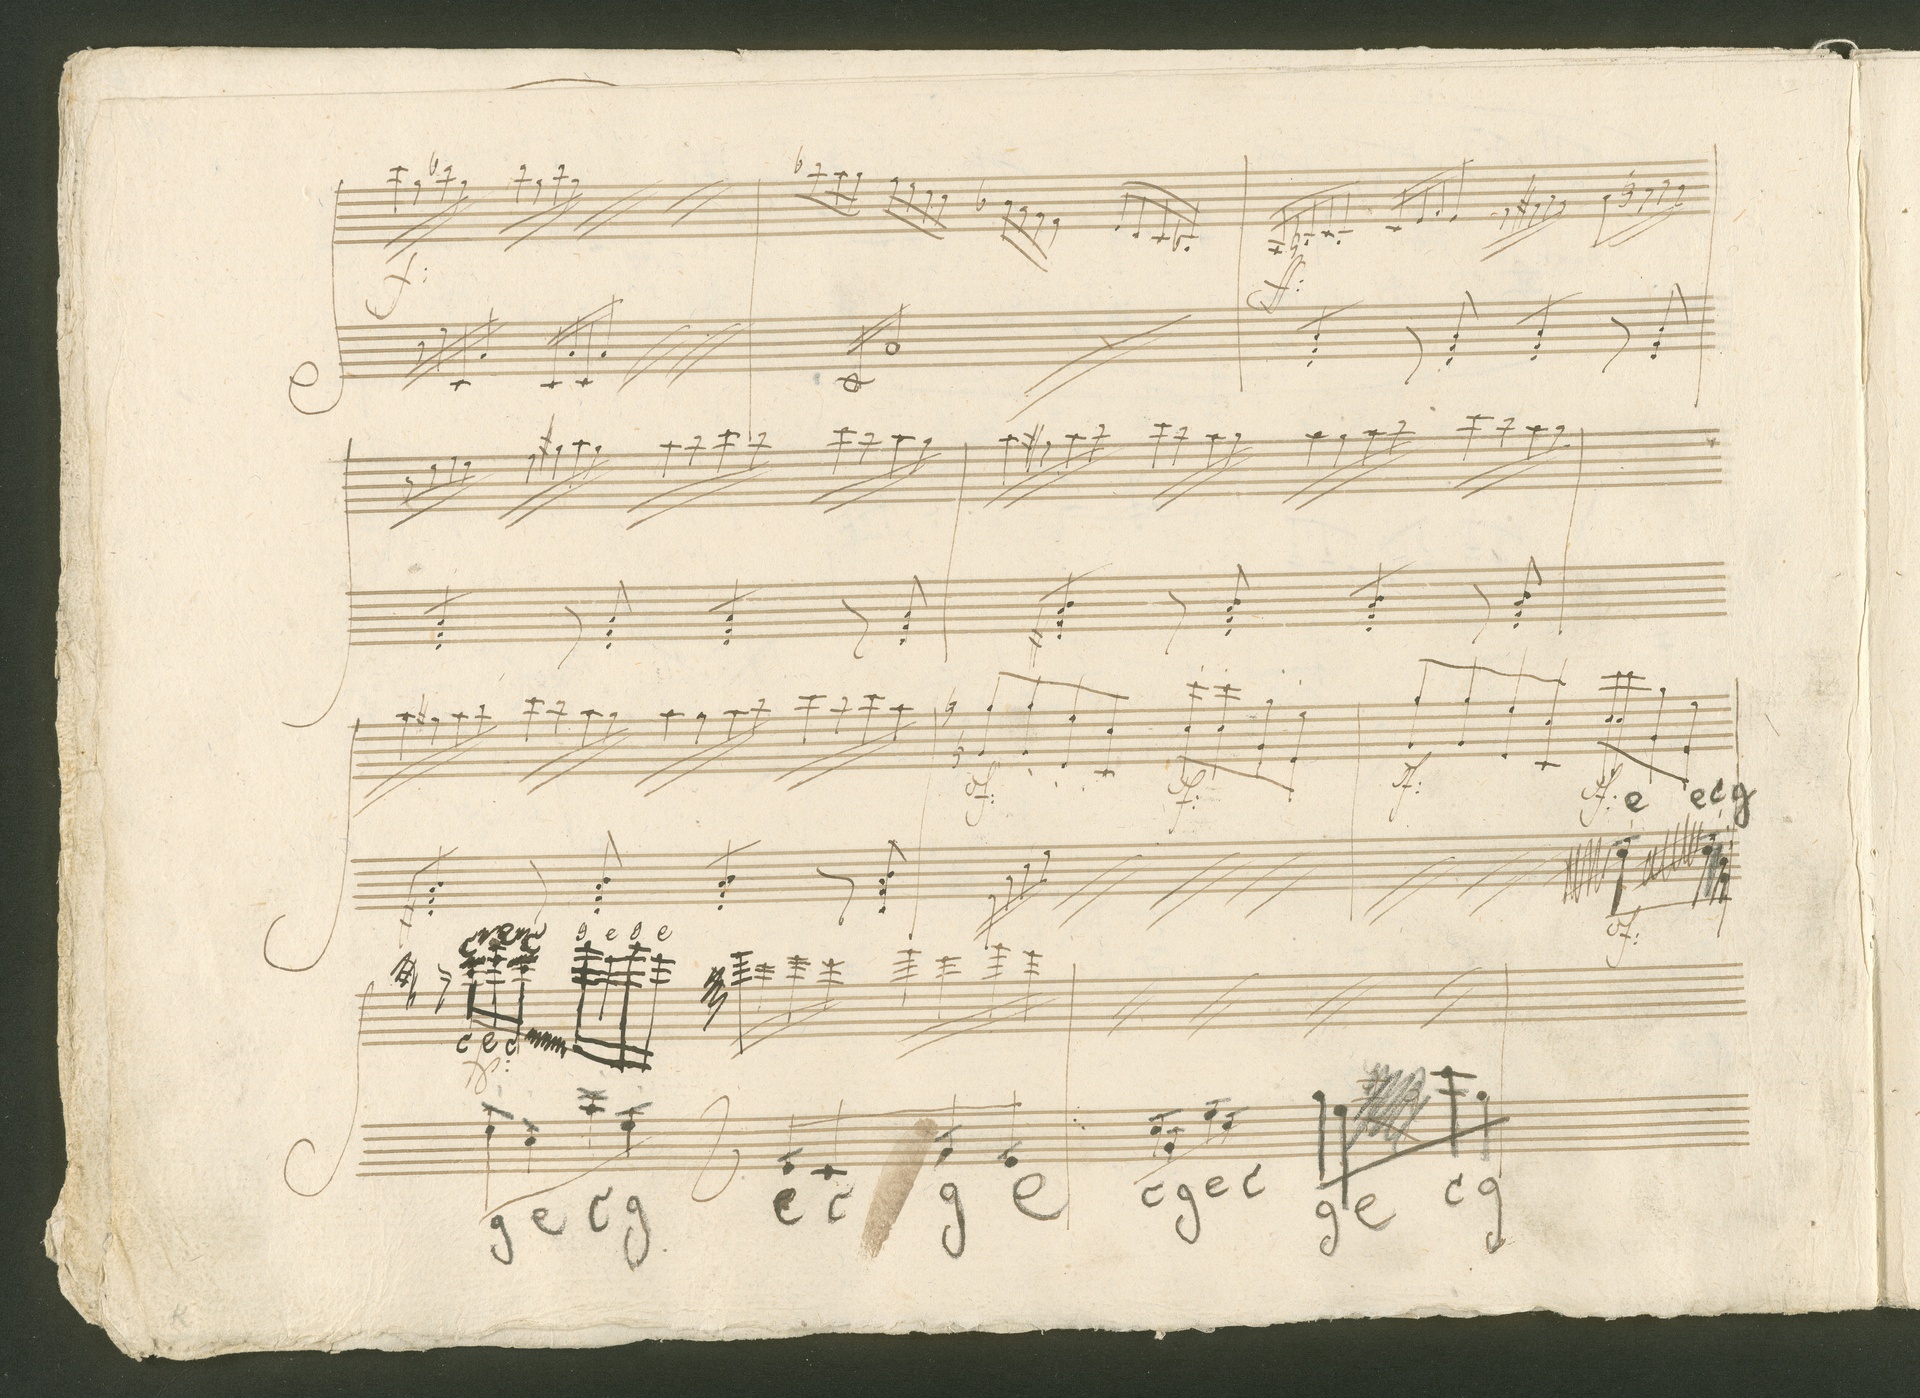 f:
f:
sf: sf: sf: sf: e ecg
sf:
g e g e
c e c
g e c g e c g e c g e c g e c g